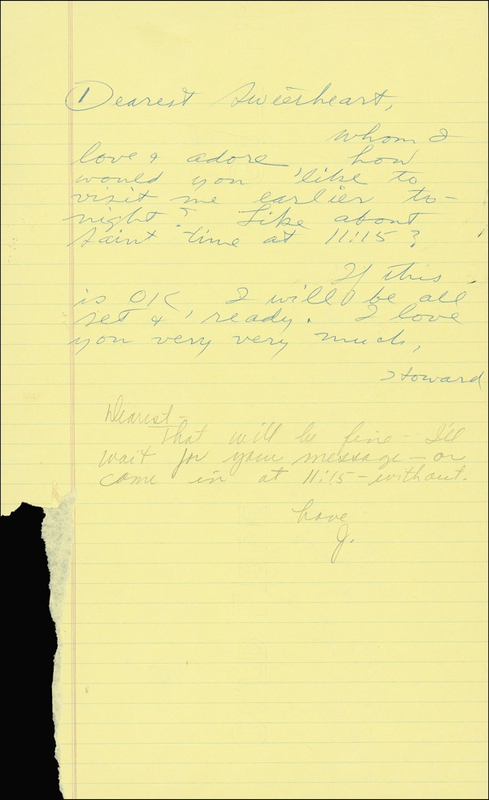 1
Dearest Sweetheart,
whom I
love & adore how
would you like to
visit me earlier to-
night? Like about
Saint time at 11:15?
If this
is OK I will be all
set & ready. I love
you very very much,
Howard
Dearest-
That will be fine - I'll
wait for your message - or
come in at 11:15 - without.
Love
J.